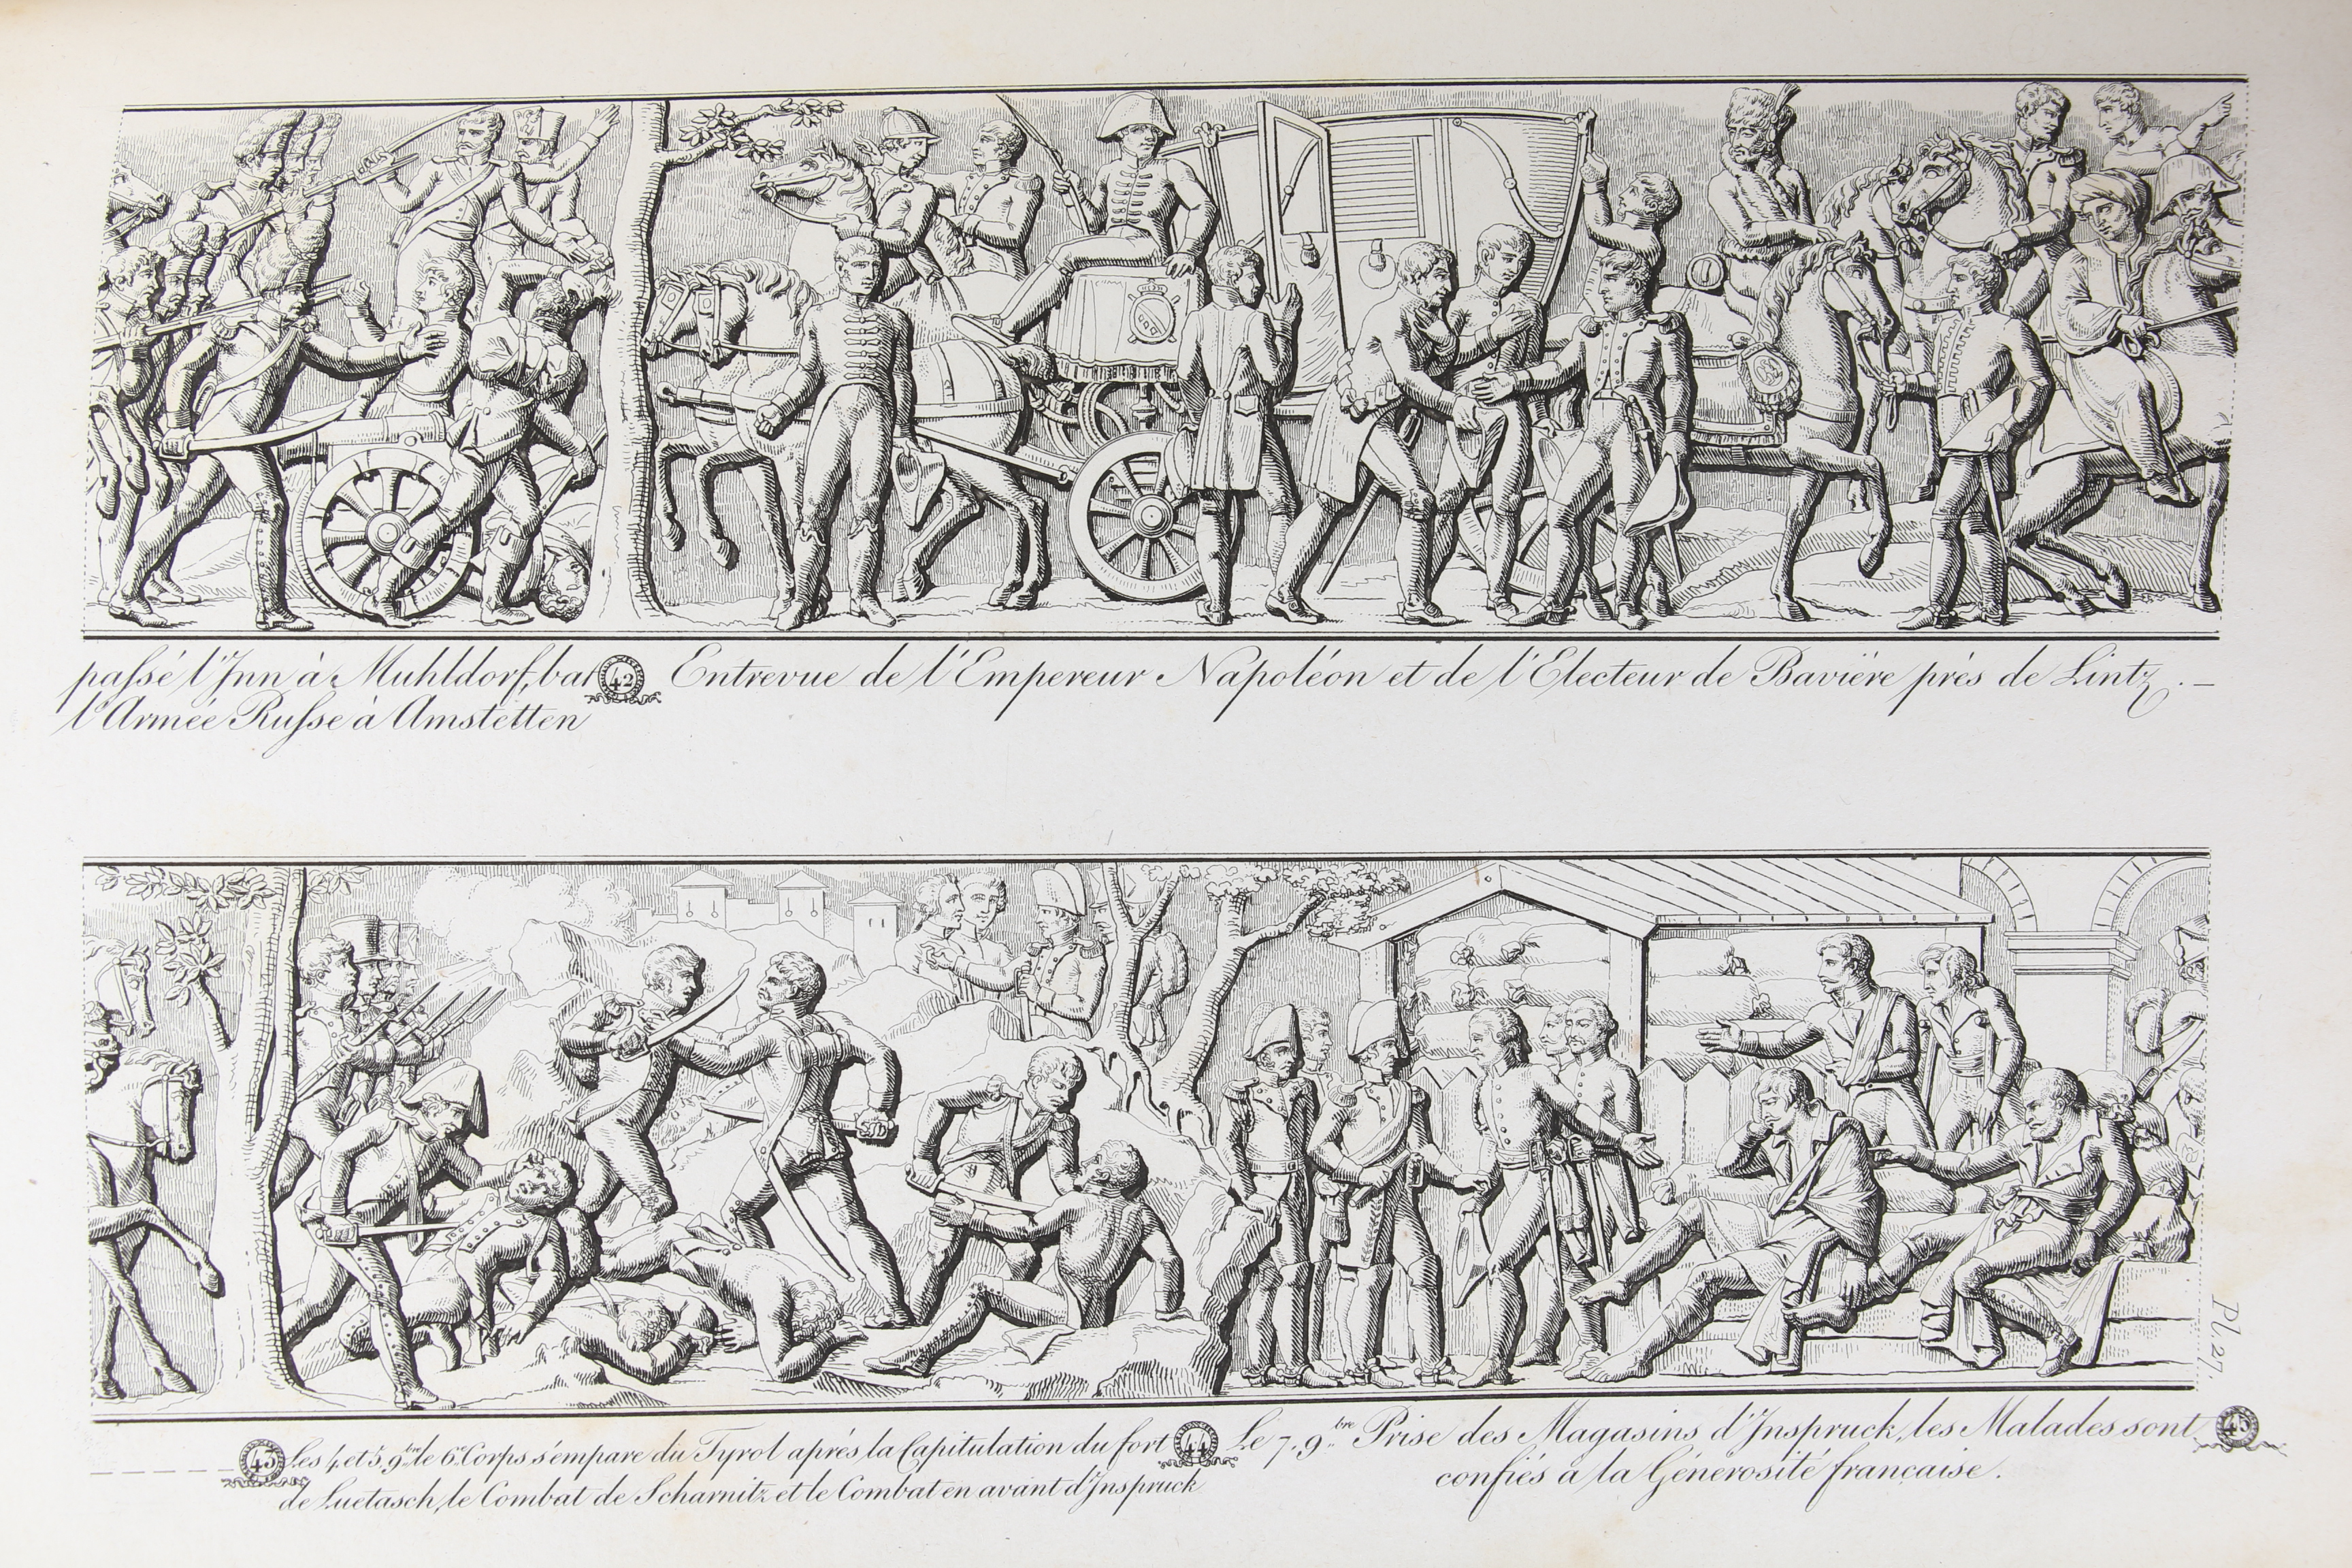 passé l'Inn à Muhldorf, bat
l'Armée Russe à Amstetten
42 Entrevue de l'Empereur Napoléon et de l'Electeur de Bavière près de Lintz.
43 Les 4, et 5, 9.bre le 6.e Corps s'empare du Tyrol après la Capitulation du fort
de Luetasch, le Combat de Scharnitz et le Combat en avant d'Inspruck
44 Le 7, 9.bre Prise des Magasins d'Inspruck, les Malades sont
confiés à la Générosité française.
45
Pl. 27.